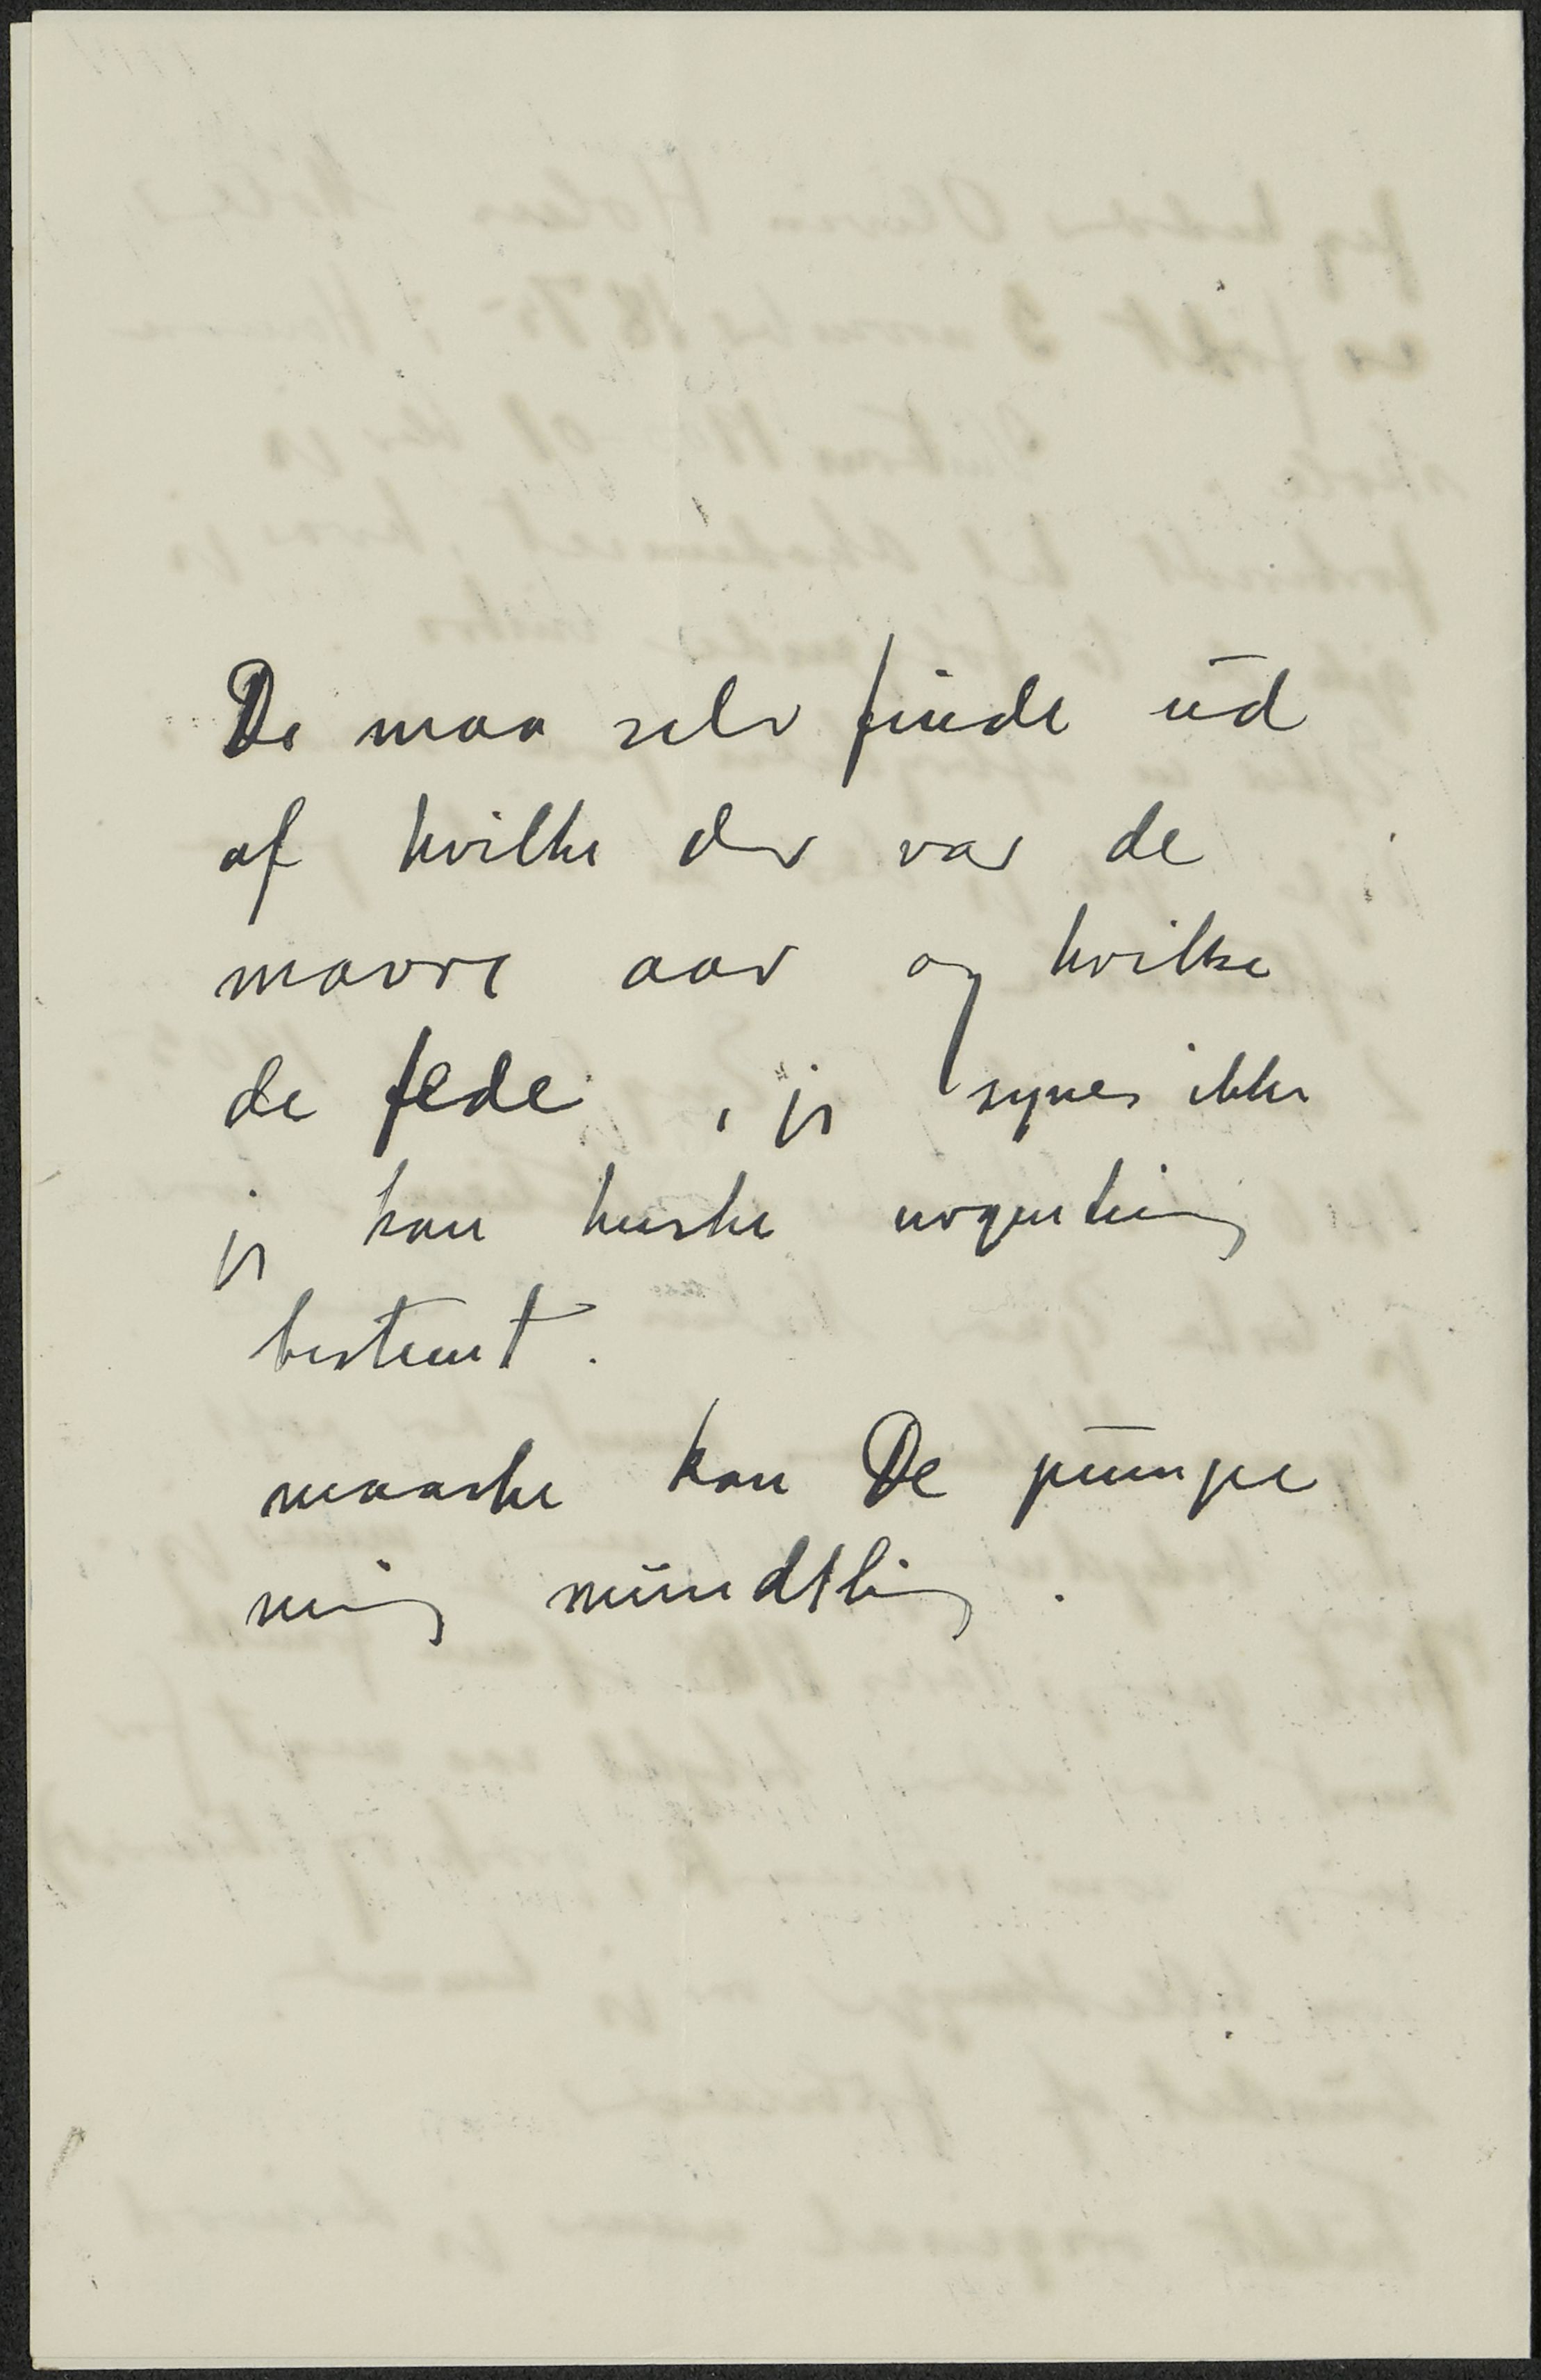 De maa selv finde ud
af hvilke der var de
mavre aar og hvilke
de fede, jeg synes ikke
jeg kan huske nogenting
bestemt.
maaske kan De pumpe
mig mundtlig.